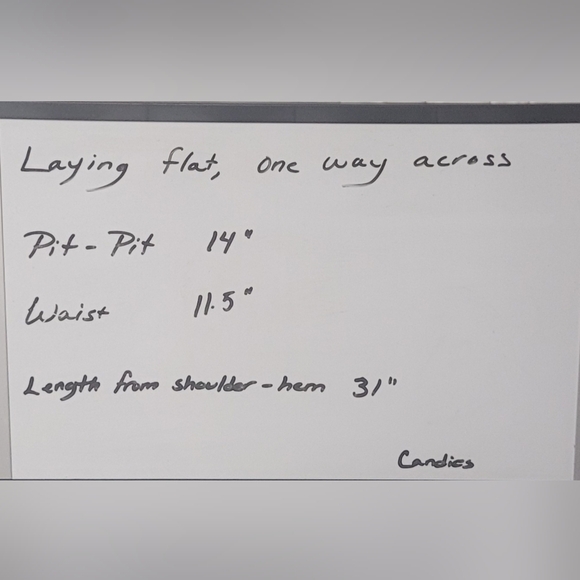 Laying flat, one way across
Pit - Pit 14"
Waist 11.5"
Length from shoulder - hem 31"
Candies